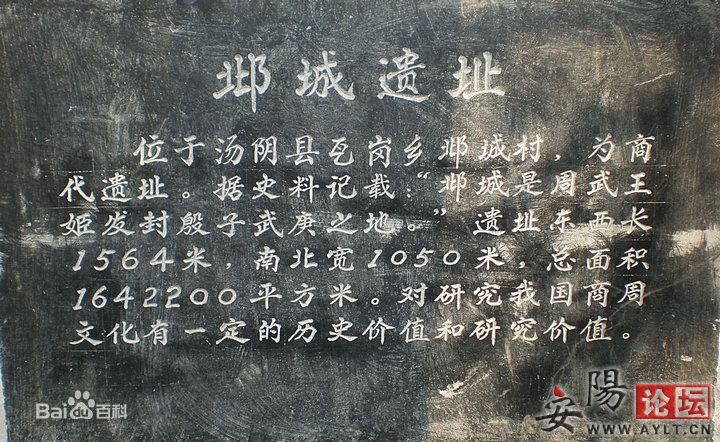 邶城遗址
位于汤阴县瓦岗乡邶城村，为商
代遗址。据史料记载：“邶城是周武王
姬发封殷子武庚之地。”遗址东西长
1564米，南北宽1050米，总面积
1642200平方米。对研究我国商周
文化有一定的历史价值和研究价值。
Bai百科
安陽论坛
WWW.AYLT.CN